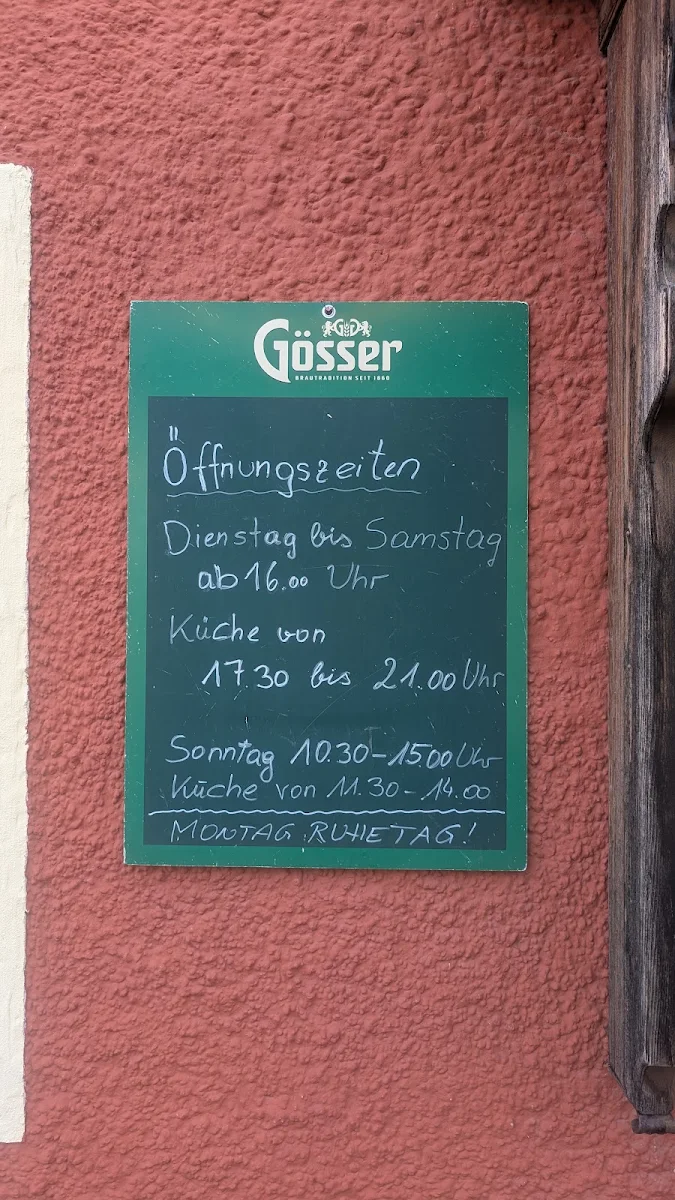 Gösser
BRAUTRADITION SEIT 1860
Öffnungszeiten
Dienstag bis Samstag
ab 16.00 Uhr
Küche von
17.30 bis 21.00 Uhr
Sonntag 10.30-15.00 Uhr
Küche von 11.30-14.00
MONTAG RUHETAG!